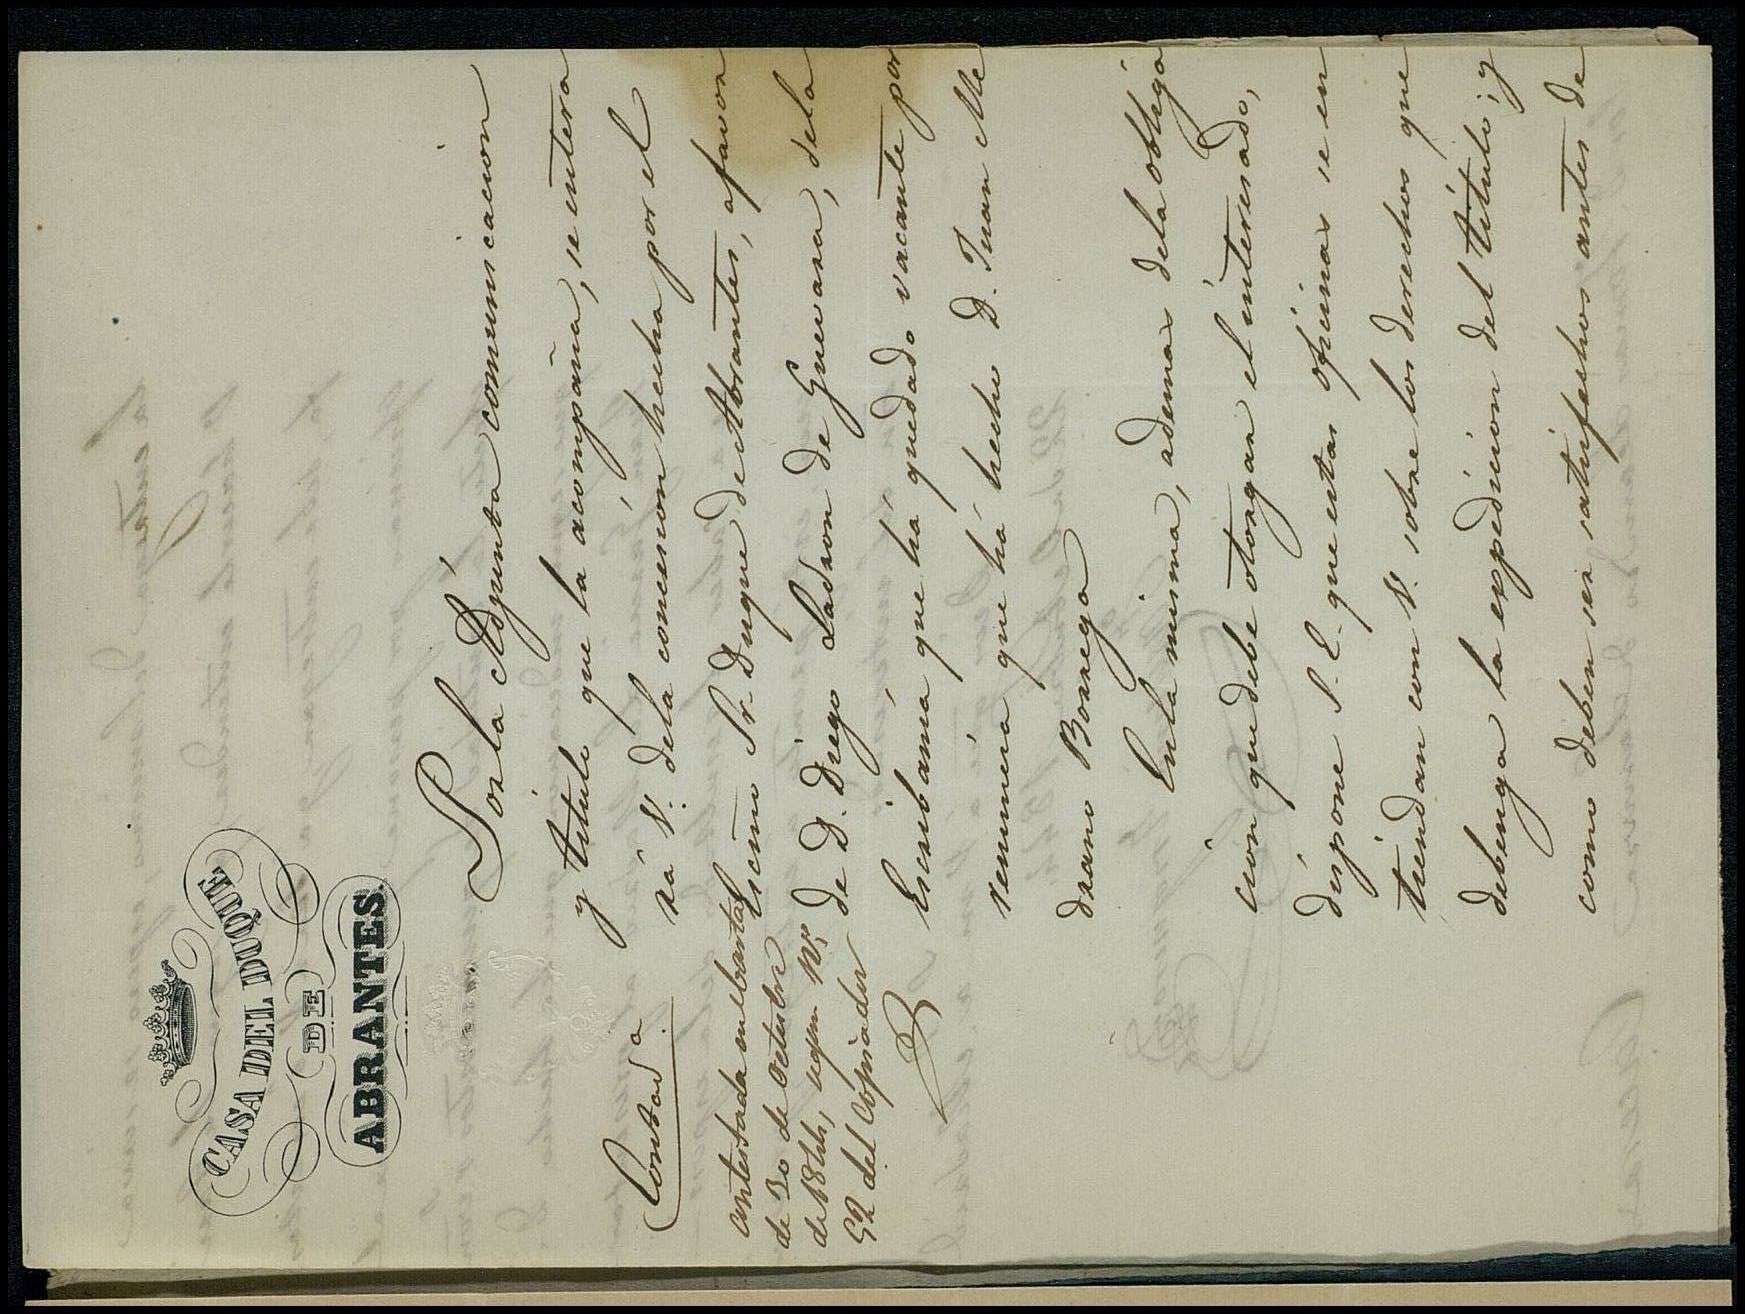 CASA DEL DUQUE
DE
ABRANTES.
Contad.ª
Contestada en el carta
de 30 de Octubre
de 1844, según Nº
92 del Copiador
Por la Adjunta comunicacion
y título que la acompaña, se entera
rá V. dela concesion hecha por el
Escmo Sr. Duque de Abrantes, afavor
de D. Diego Ladron de Guevara, dela
Escribanía que ha quedado vacante por
renuncia que há hecho D. Juan Me
drano Borrego
En la misma, ademas dela obliga
cion que debe otorgar el interesado,
dispone S. E. que estas oficinas se en
tiendan con V. sobre los derechos que
debenga la expedicion del título; y
como deben ser satisfechos antes de